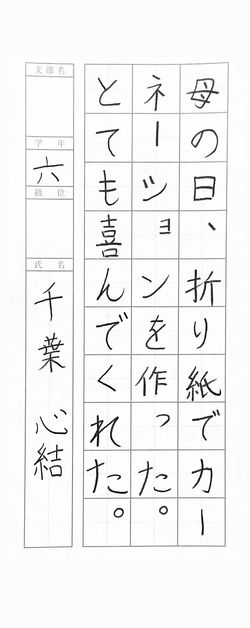 母の日、折り紙でカー
ネーション を作った。
とても喜んでくれた。
支部名
学年
六
級位
氏名
千葉 心結